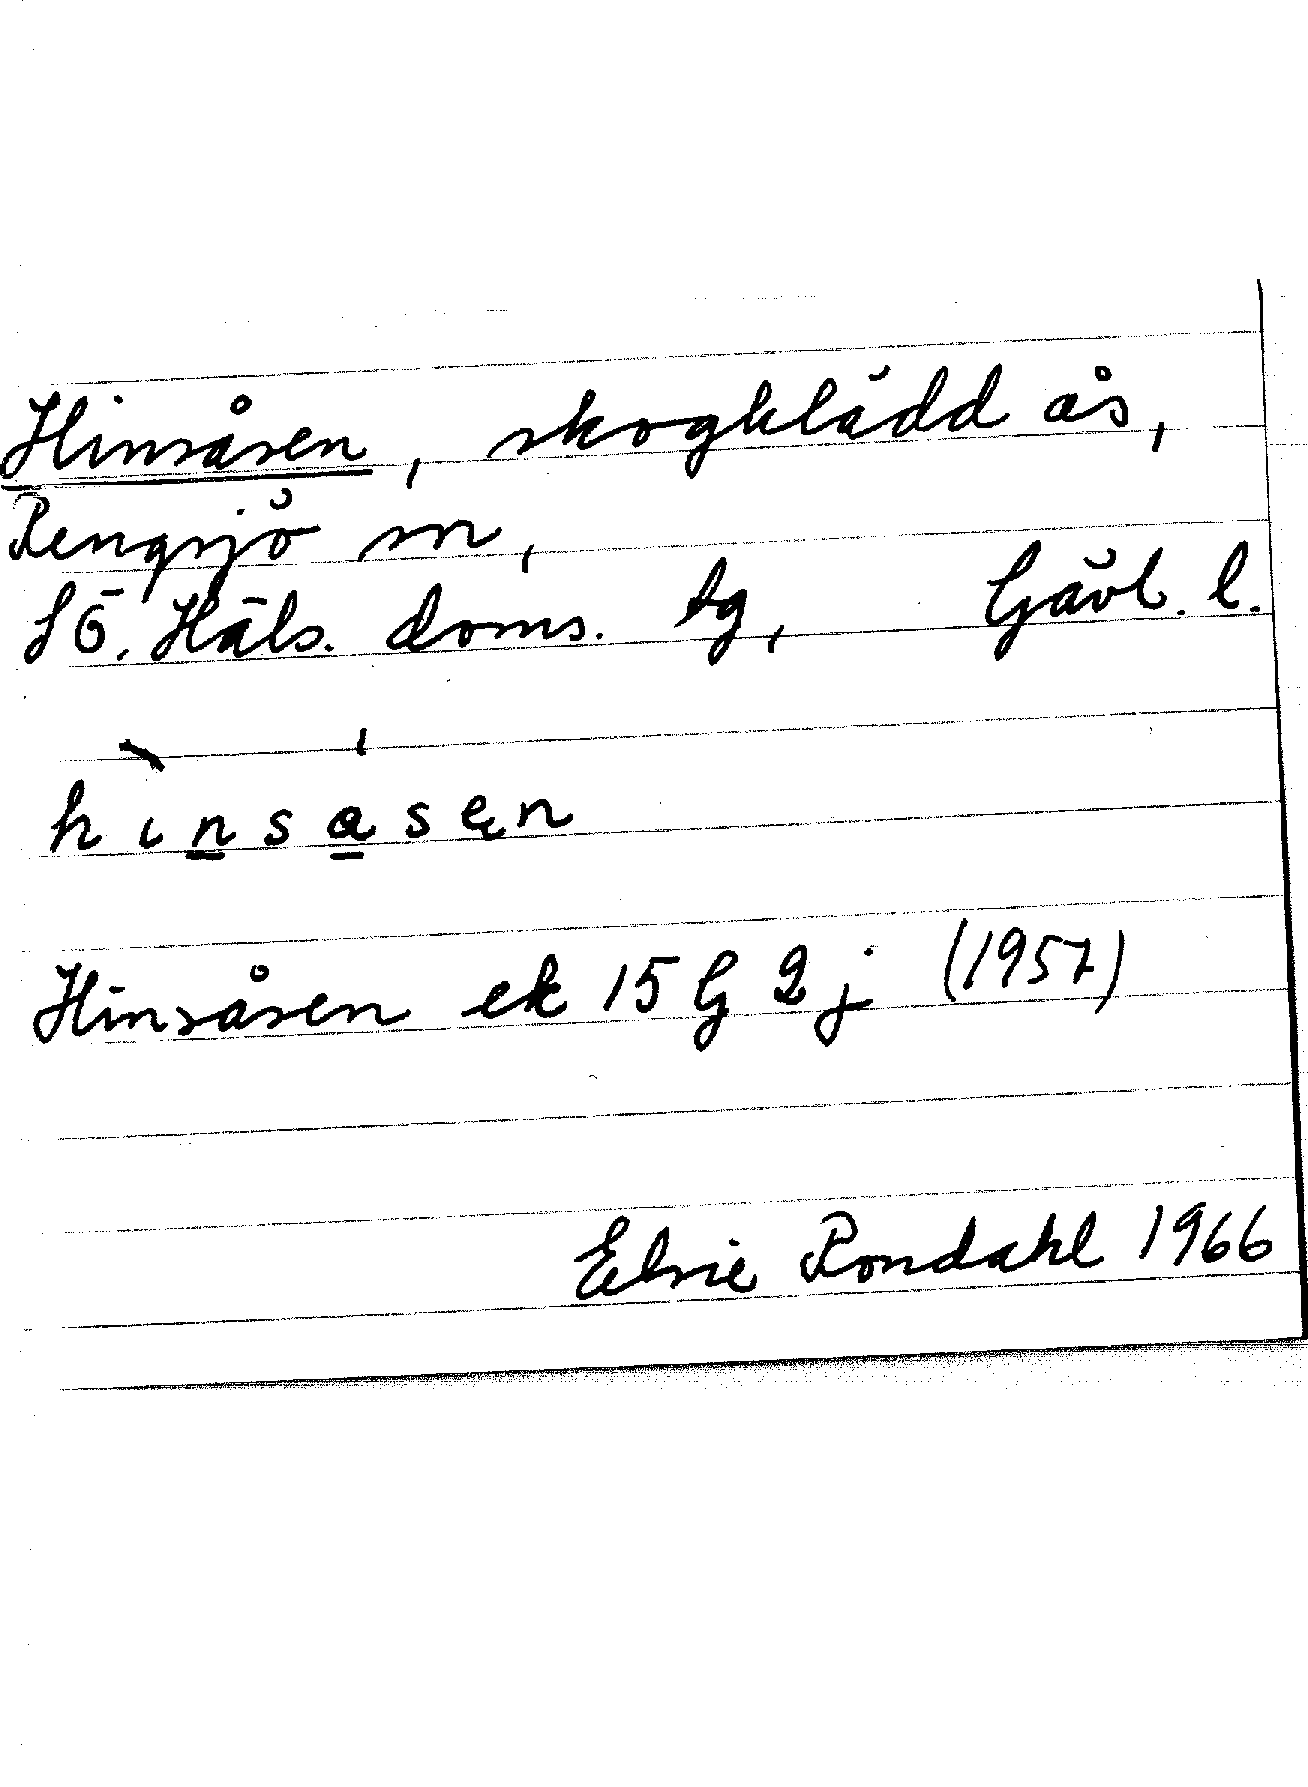 Hinsåsen, skogklädd ås,
Rengsjö sn,
SÖ. Häls. doms. tg, Gävl. l.
hìnsása̱sęn
Hinsåsen ek 15 G 2 j (1957)
Elsie Rondahl 1966